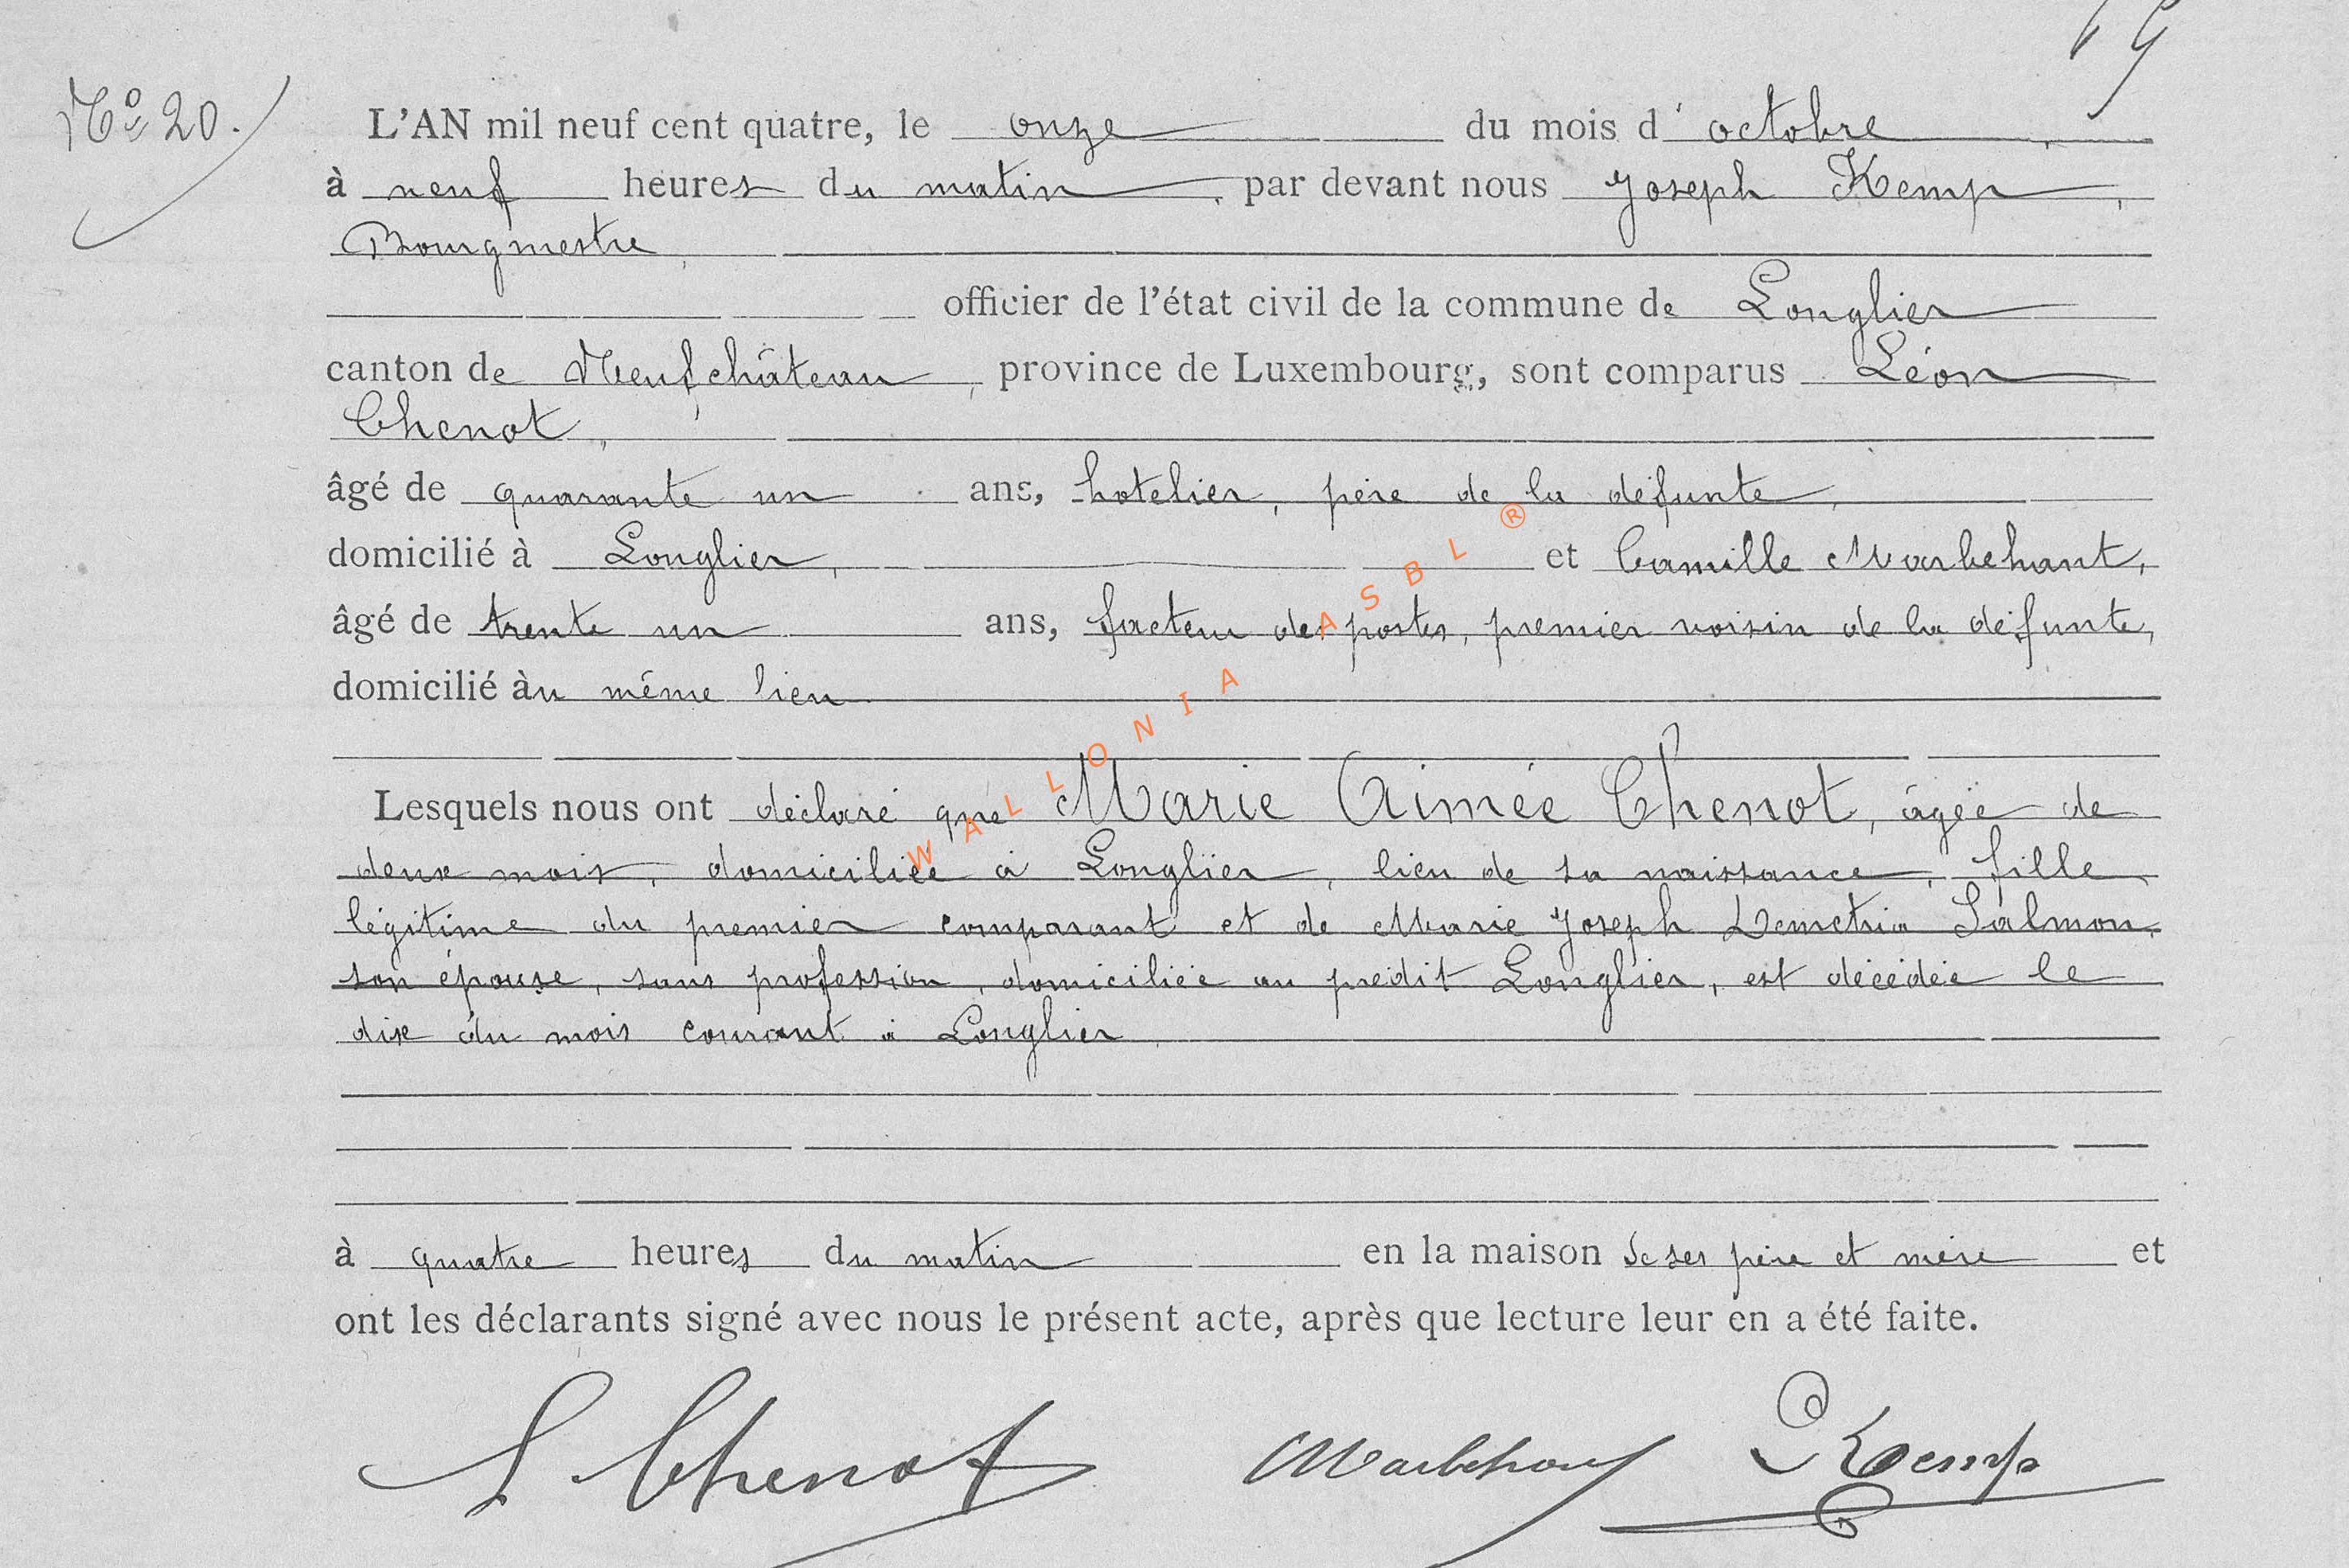 19
N° 20.
L'AN mil neuf cent quatre, le onze du mois d'octobre,
à neuf heures du matin, par devant nous Joseph Kemp,
Bourgmestre,
officier de l'état civil de la commune de Longlier
canton de Neufchâteau, province de Luxembourg, sont comparus Léon
Chenot,
âgé de quarante un ans, hotelier, père de la défunte,
domicilié à Longlier, et Camille Marbehant,
âgé de trente un ans, facteur des postes, premier voisin de la défunte,
domicilié àu même lieu
Lesquels nous ont déclaré que Marie Aimée Chenot, âgée de
deux mois, domiciliée à Longlier, lieu de sa naissance, fille
légitime du premier comparant et de Marie Joseph Demetria Salmon,
son épouse, sans profession, domiciliée au prédit Longlier, est décédée le
dix du mois courant à Longlier
à quatre heures du matin en la maison de ses père et mère et
ont les déclarants signé avec nous le présent acte, après que lecture leur en a été faite.
L Chenot Marbehant Kemp
WALLONIA ASBL ®